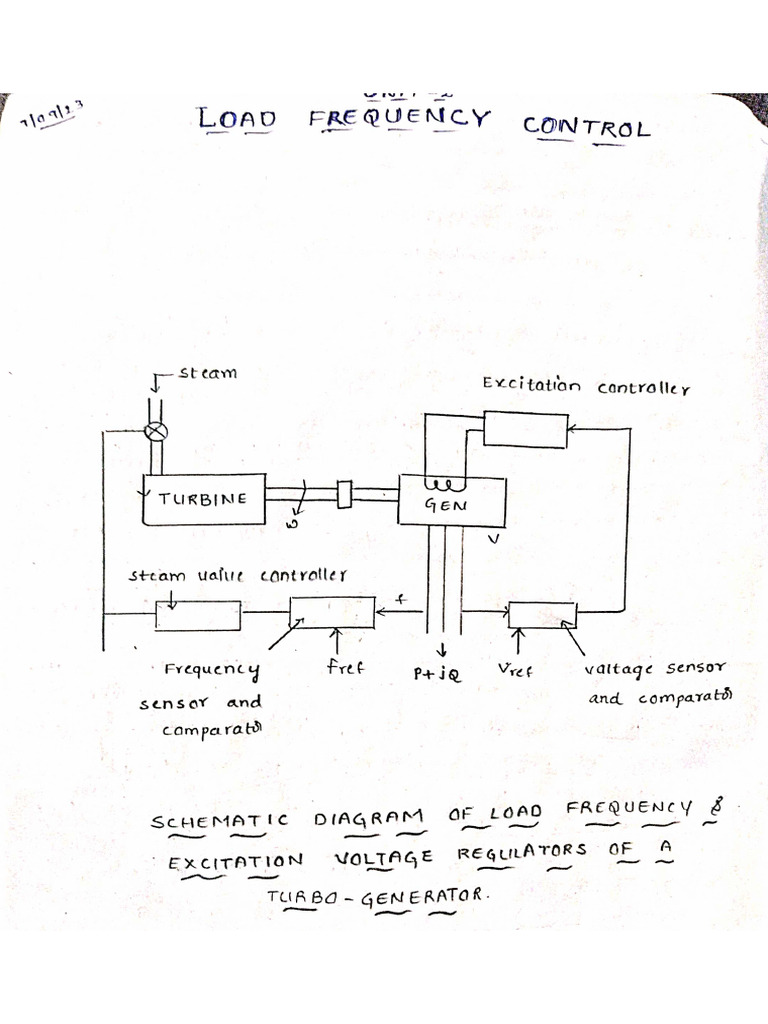 7/09/23
LOAD FREQUENCY CONTROL
steam
Excitation controller
TURBINE
ω
GEN
V
steam valve controller
f
Frequency
sensor and
comparator
fref
P+jQ
Vref
voltage sensor
and comparator
SCHEMATIC DIAGRAM OF LOAD FREQUENCY &
EXCITATION VOLTAGE REGULATORS OF A
TURBO-GENERATOR.